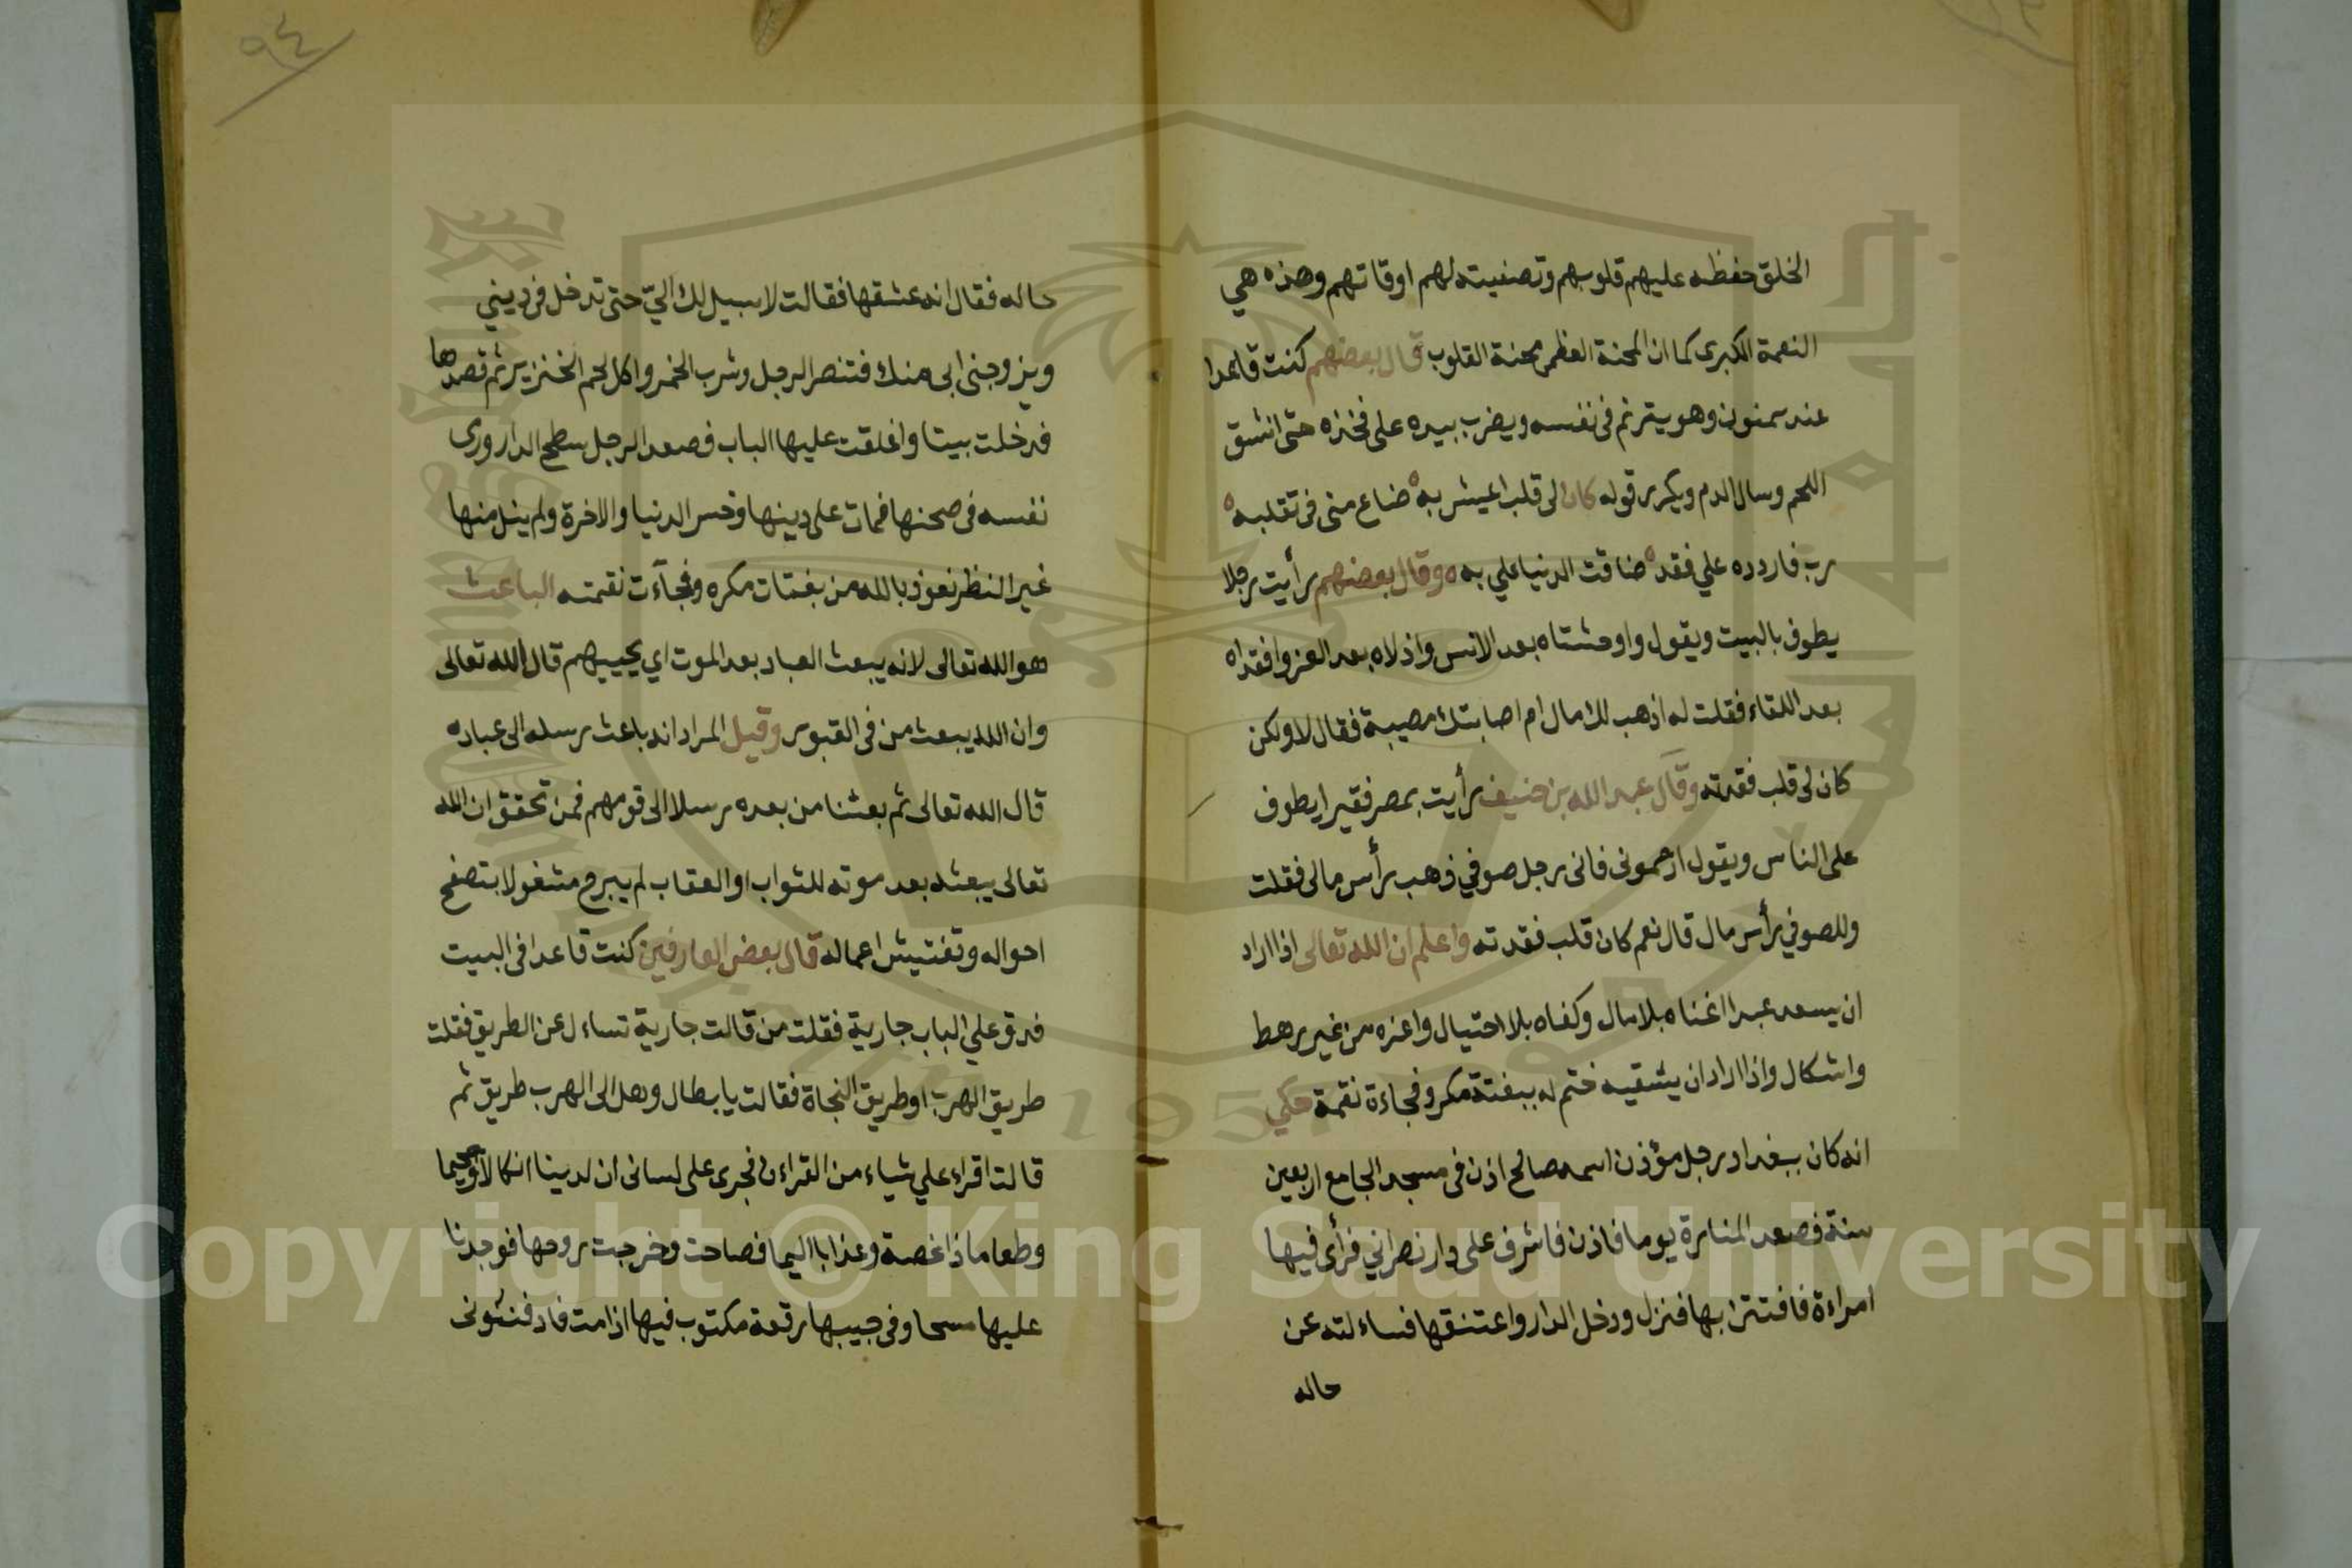 الخلق حفظه عليهم قلوبهم وتصفيته لهم اوقاتهم وهذه هي
النعمة الكبرى كما ان المحنة العظمى محنة القلوب قال بعضهم كنت قاعدا
عند سمنون وهو يترنم فى نفسه ويضرب بيده على فخذه حتى انشق
اللحم وسال الدم ويكرر قوله كان لى قلب اعيش به ضاع منى فى تقلبه
رب فاردده علي فقد ضاقت الدنيا علي به وقال بعضهم رأيت رجلا
يطوف بالبيت ويقول واوحشتاه بعد الانس واذلاه بعد العز وافقراه
بعد اللقاء فقلت له اذهب لك مال ام اصابتك مصيبة فقال لا ولكن
كان لى قلب فقدته وقال عبد الله بن خفيف رأيت بمصر فقيرا يطوف
على الناس ويقول ارحمونى فانى رجل صوفي ذهب رأس مالى فقلت
وللصوفي رأس مال قال نعم كان قلب فقدته واعلم ان الله تعالى اذا اراد
ان يسعد عبدا اغناه بلا مال وكفاه بلا احتيال واعزه من غير رهط
واشكال واذا اراد ان يشقيه ختم له ببغتة مكر وفجاءة نقمة حكي
انه كان ببغداد رجل مؤذن اسمه صالح اذن فى مسجد الجامع اربعين
سنة فصعد المنارة يوما فاذن فاشرف على دار نصراني فرأى فيها
امراءة فافتتن بها فنزل ودخل الدار واعتنقها فساءلته عن
حاله
٩٤
حاله فقال انه عشقها فقالت لا سبيل لك اليّ حتى تدخل فى ديني
ويزوجنى ابى منك فتنصر الرجل وشرب الخمر واكل لحم الخنزير ثم قصدها
فدخلت بيتا واغلقت عليها الباب فصعد الرجل سطح الدار ورى
نفسه فى صحنها فمات على دينها وخسر الدنيا والاخرة ولم ينل منها
غير النظر نعوذ بالله من بغتات مكره وفجآءت نقمته الباعث
هو الله تعالى لانه يبعث العباد بعد الموت اي يحييهم قال الله تعالى
وان الله يبعث من فى القبور وقيل المراد انه باعث رسله الى عباده
قال الله تعالى ثم بعثنا من بعده رسلا الى قومهم فمن تحقق ان الله
تعالى يبعثه بعد موته للثواب او العقاب لم يبرح مشغولا بتصفح
احواله وتفتيش اعماله قال بعض العارفين كنت قاعدا فى البيت
فدق علي الباب جارية فقلت من قالت جارية تساءل عن الطريق فقلت
طريق الهرب او طريق النجاة فقالت يا بطال وهل الى الهرب طريق ثم
قالت اقراء علي شياء من القراءن فجرى على لسانى ان لدينا انكالا وجحيما
وطعاما ذا غصة وعذابا اليما فصاحت وخرجت روحها فوجدنا
عليها مسحا وفى جيبها رقعة مكتوب فيها اذا مت فادفنونى
Copyright © King Saud University
1957